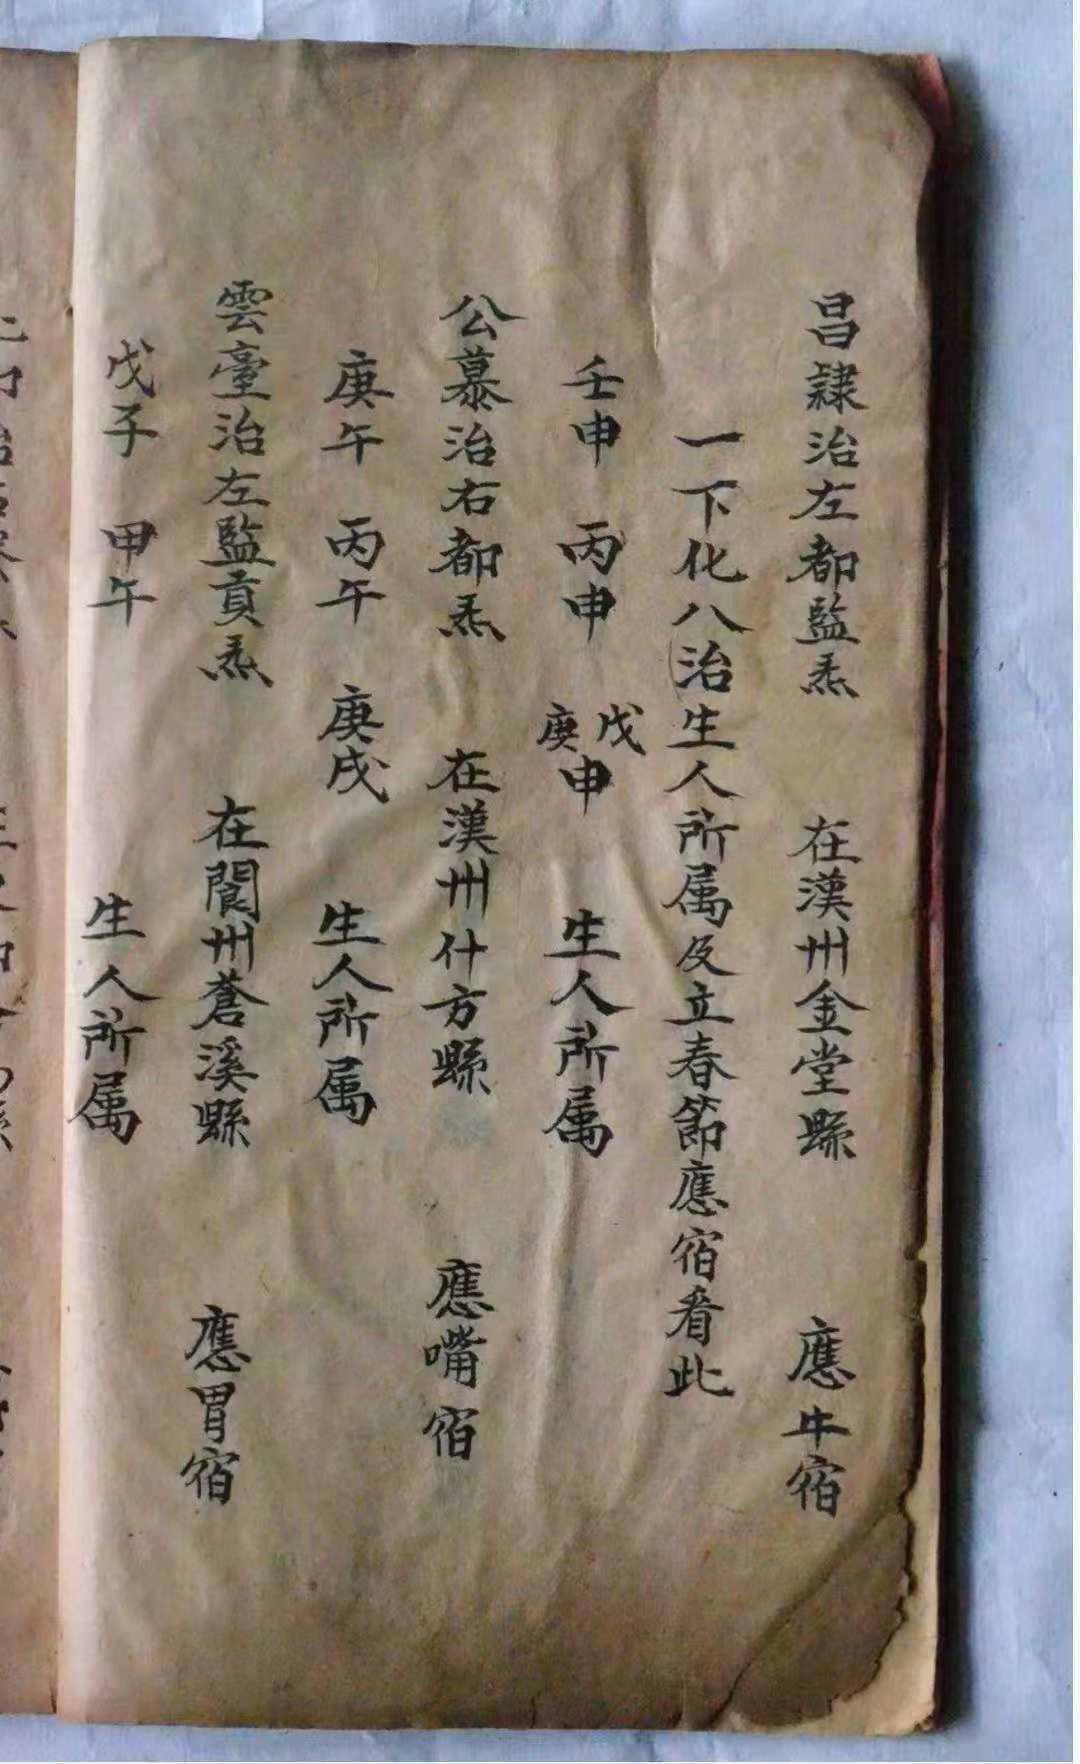 昌隸治左都監炁　在漢州金堂縣　應牛宿
一下化八治生人所属及立春節應宿看此
壬申　丙申　戊庚申　生人所属
公慕治右都炁　在漢州什方縣　應嘴宿
庚午　丙午　庚戌　生人所属
雲臺治左監貢炁　在閬州蒼溪縣　應胃宿
戊子　甲午　生人所属